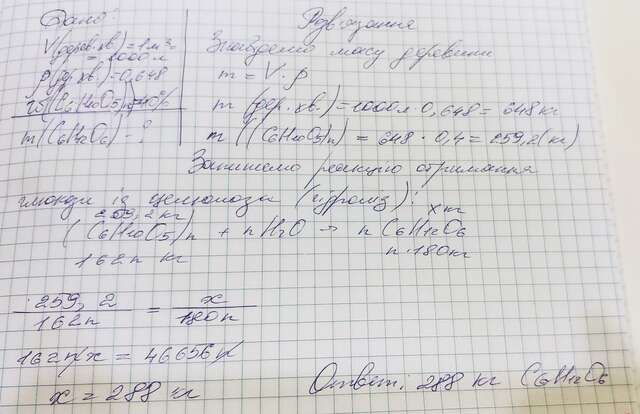 Дано:
V(дерев.хв.)=1м³=
= 1000л
ρ(дер.хв.)=0,648
ω(C6H10O5)n=40%
m(C6H12O6) - ?
Розв'язання
Знайдемо масу деревини
m = V · ρ
m (дер. хв.) = 1000л · 0,648 = 648 кг
m ((C6H10O5)n) = 648 · 0,4 = 259,2 (кг)
Запишемо реакцію отримання
глюкози із целюлози (гідроліз):
259,2 кг x кг
(C6H10O5)n + n H2O → n C6H12O6
162n кг n·180кг
259,2 / 162n = x / 180n
162n x = 46656n
x = 288 кг
Ответ: 288 кг C6H12O6